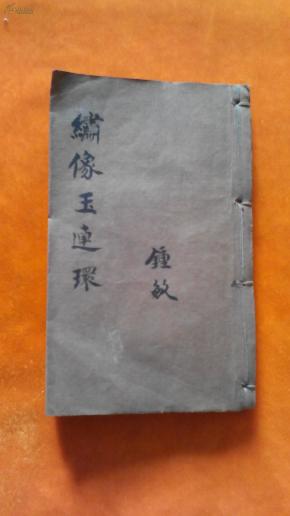 繡像玉連環
鍾敏